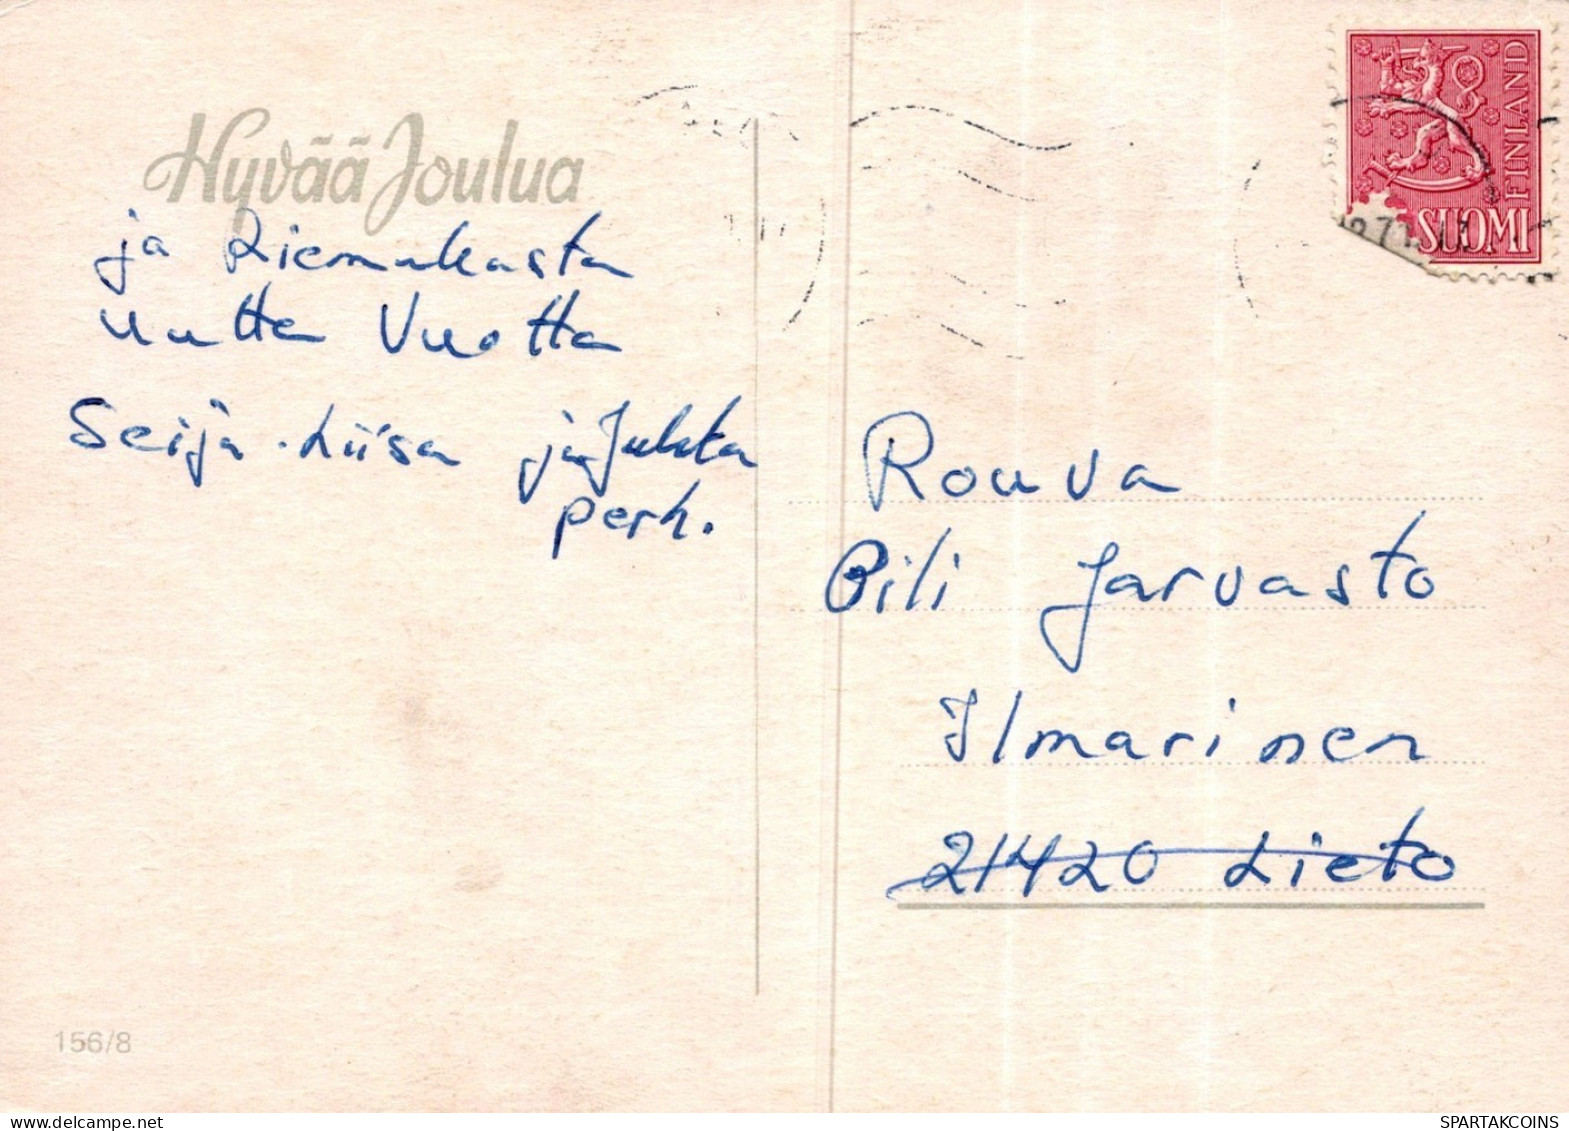 Hyvää Joulua
ja Riemukasta
uutta Vuotta
Seija-Liisa ja Jukka
perh.
FINLAND
SUOMI
Rouva
Oili Jarvasto
Ilmarinen
21420 Lieto
156/8
SPARTAKCOINS